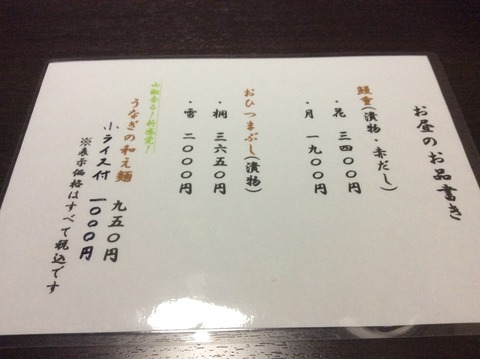 お昼のお品書き
鰻重(漬物・赤だし)
・花 三四〇〇円
・月 一九〇〇円
おひつまぶし(漬物)
・桐 三六五〇円
・雪 二〇〇〇円
山椒香る!新感覚!
うなぎの和え麺 九五〇円
小ライス付 一〇〇〇円
※表示価格はすべて税込です